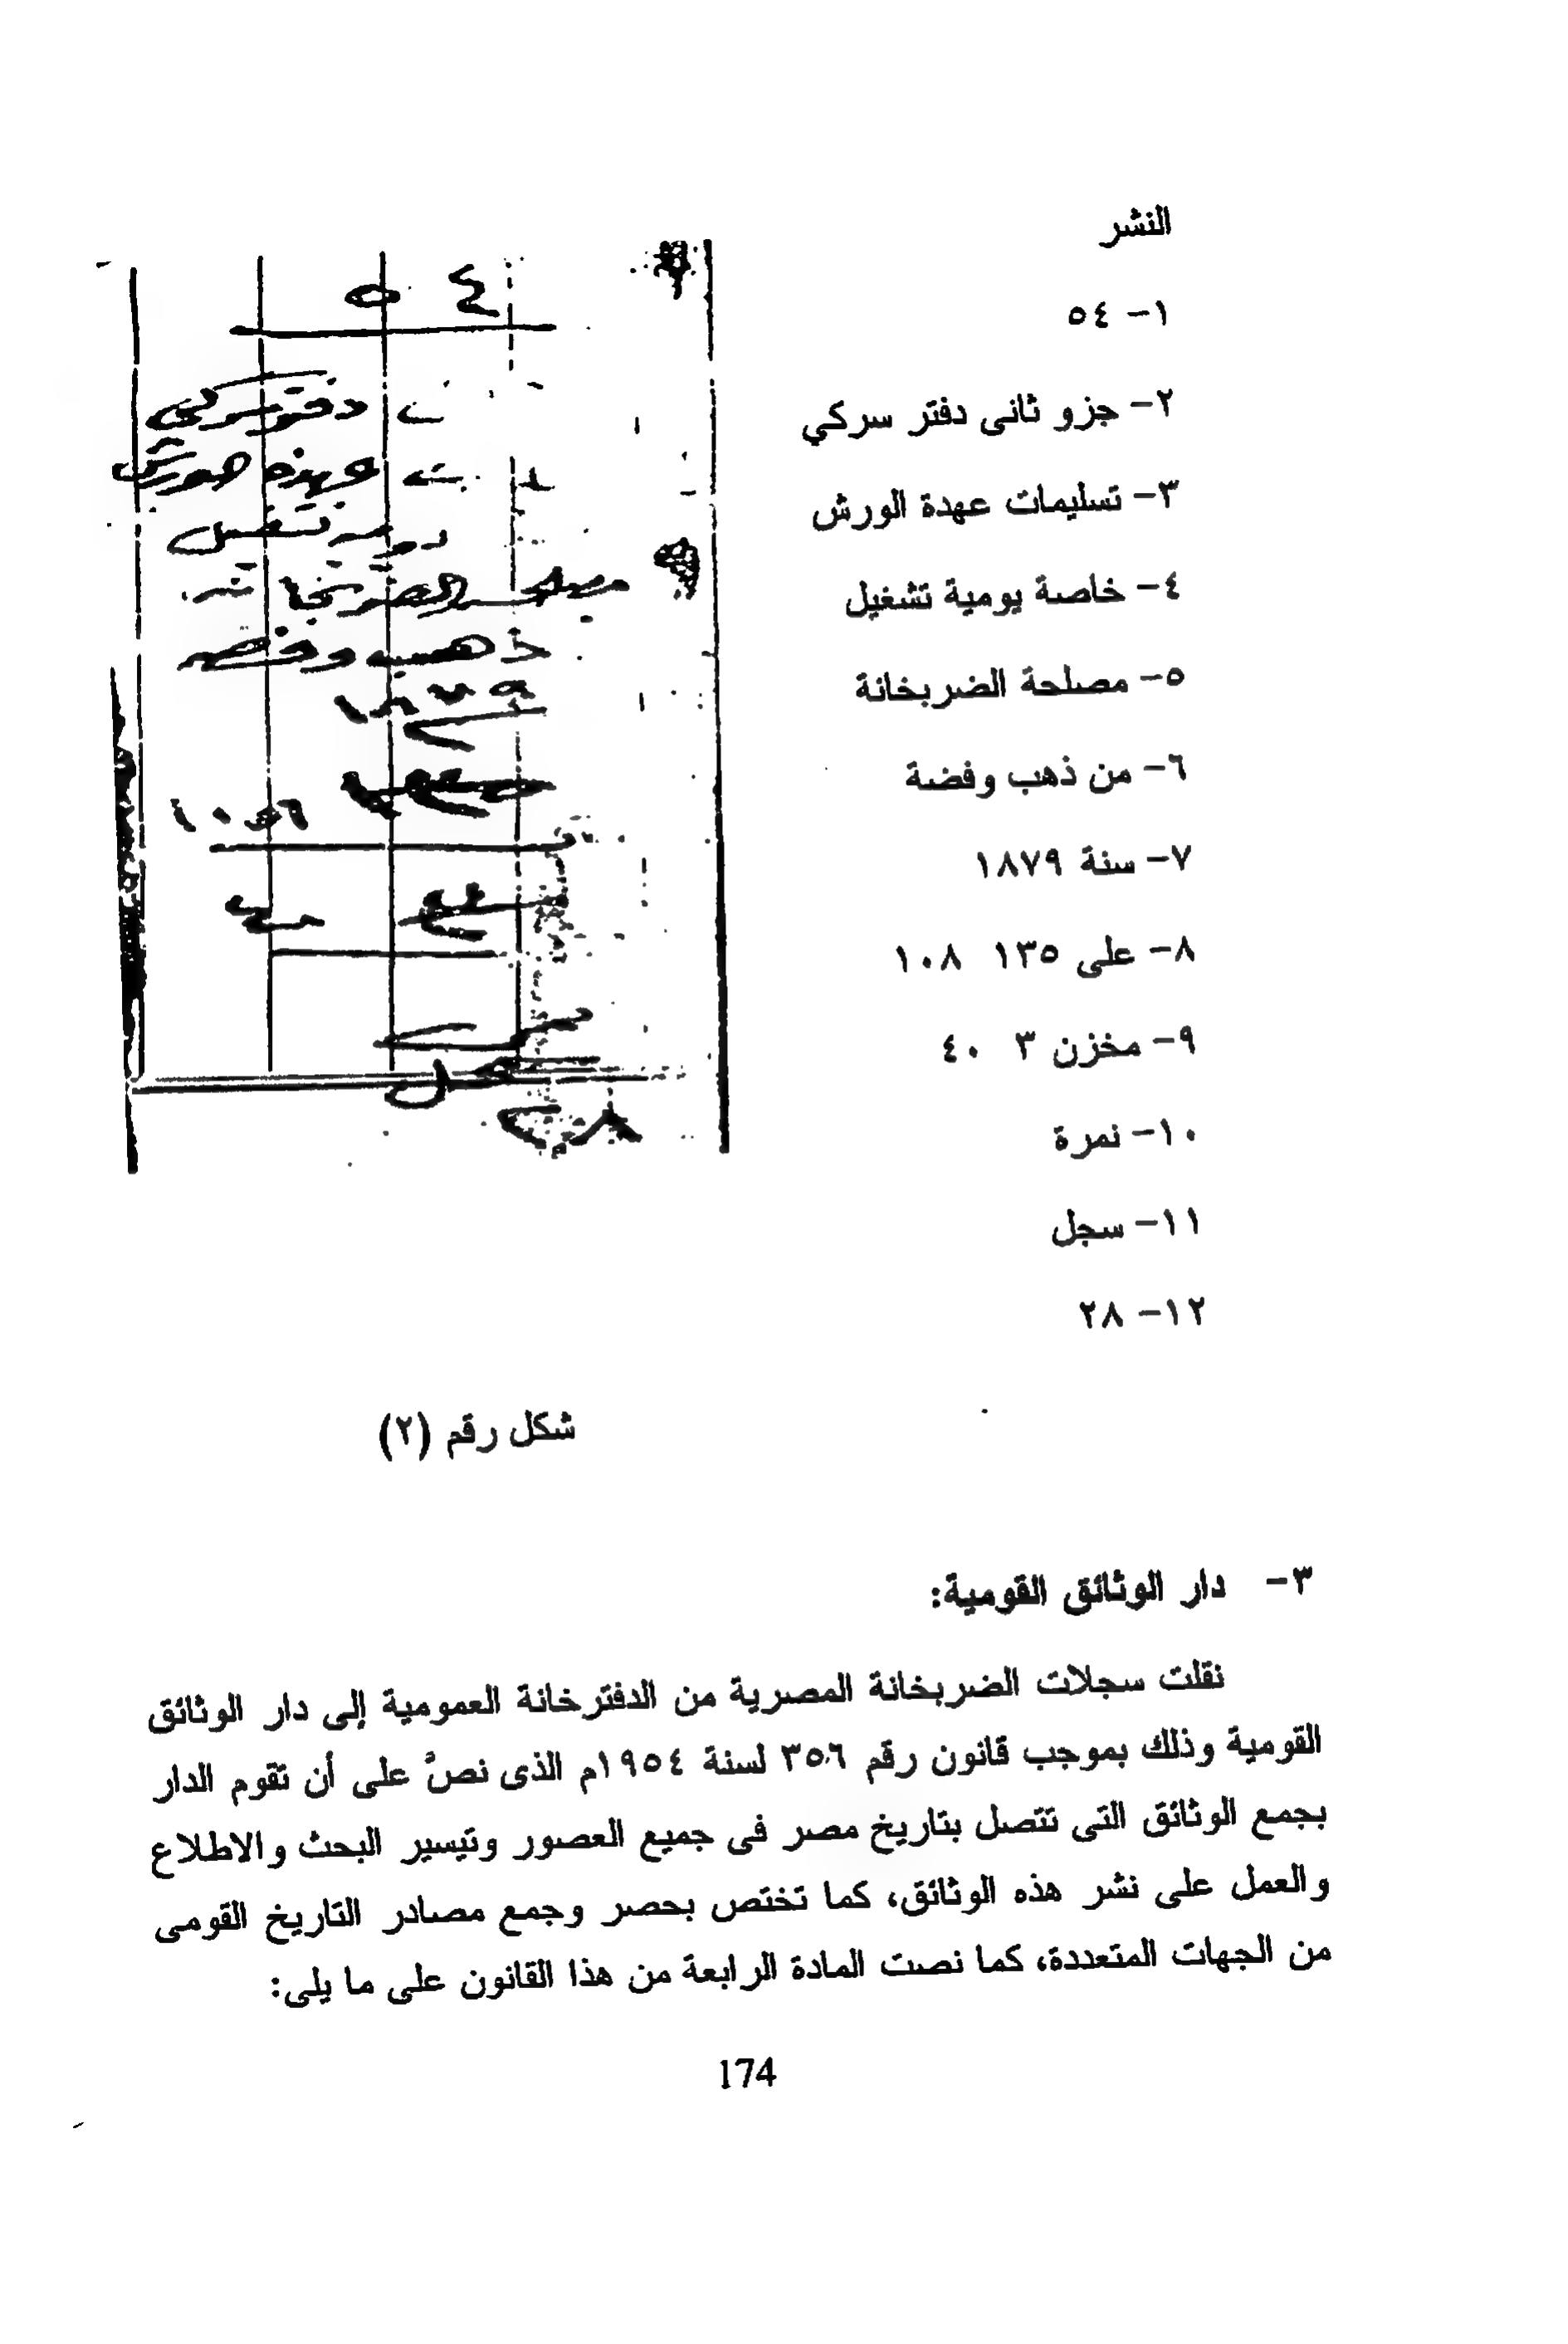 النشر
١- ٥٤
٢- جزو ثانى دفتر سركي
٣- تسليمات عهدة الورش
٤- خاصة يومية تشغيل
٥- مصلحة الضربخانة
٦- من ذهب وفضة
٧- سنة ١٨٧٩
٨- على ١٣٥ ١٠٨
٩- مخزن ٣ ٤٠
١٠- نمرة
١١- سجل
١٢- ٢٨
دفتر سركي
عهدة
ذهب وفضه
١٨٧٩
شكل رقم (٢)
٣- دار الوثائق القومية:
نقلت سجلات الضربخانة المصرية من الدفترخانة العمومية إلى دار الوثائق
القومية وذلك بموجب قانون رقم ٣٥٦ لسنة ١٩٥٤م الذى نصَّ على أن تقوم الدار
بجمع الوثائق التى تتصل بتاريخ مصر فى جميع العصور وتيسير البحث والاطلاع
والعمل على نشر هذه الوثائق، كما تختص بحصر وجمع مصادر التاريخ القومى
من الجهات المتعددة، كما نصت المادة الرابعة من هذا القانون على ما يلى:
174